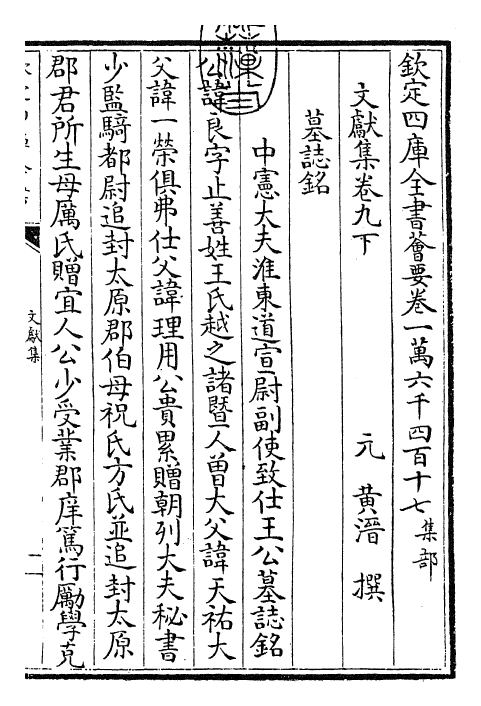 欽定四庫全書薈要卷一萬六千四百十七集部
文獻集卷九下
元　黃溍　撰
墓誌銘
中憲大夫淮東道宣尉副使致仕王公墓誌銘
公諱良字止善姓王氏越之諸暨人曾大父諱天祐大
父諱一榮俱弗仕父諱理用公貴累贈朝列大夫秘書
少監騎都尉追封太原郡伯母祝氏方氏並追封太原
郡君所生母厲氏贈宜人公少受業郡庠篤行勵學克
文獻集
一